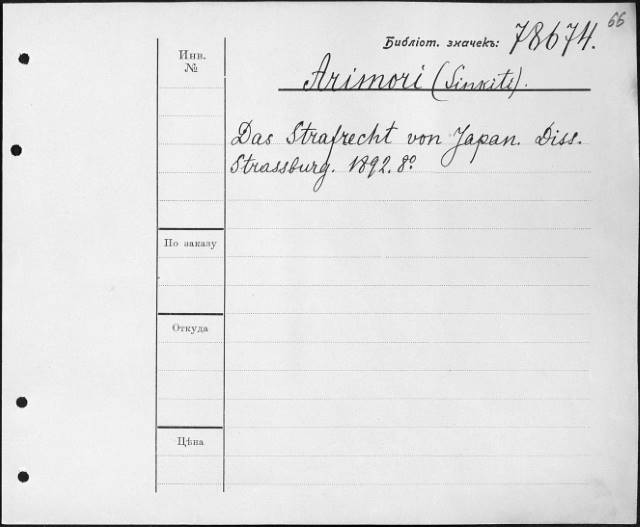 66
Библіот. значекъ: 78674.
Инв.
№
Arimori (Sinkiti).
Das Strafrecht von Japan. Diss.
Strassburg. 1892. 8º
По заказу
Откуда
Цѣна